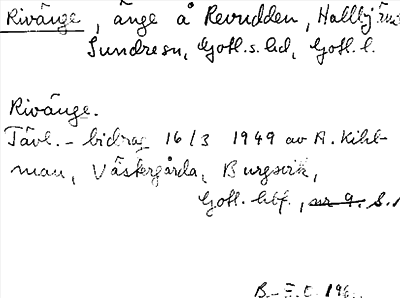 Rivänge, änge å Revudden, Hallbjäns
Sundresn, Gotl. s. hd, Gotl. l.
Rivänge.
Tävl.-bidrag 16/3 1949 av A. Kihl-
man, Västergårda, Burgsvik,
Gotl. hbf., nr 9. S.
B-E.E. 196